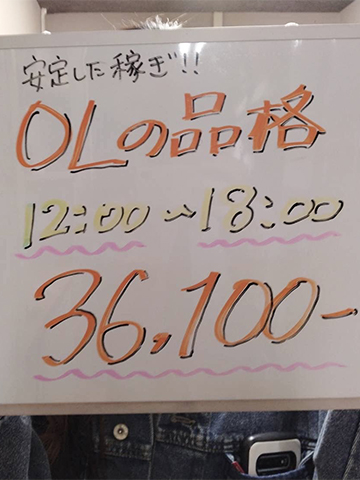 安定した稼ぎ!!
OLの品格
12:00~18:00
36,100-